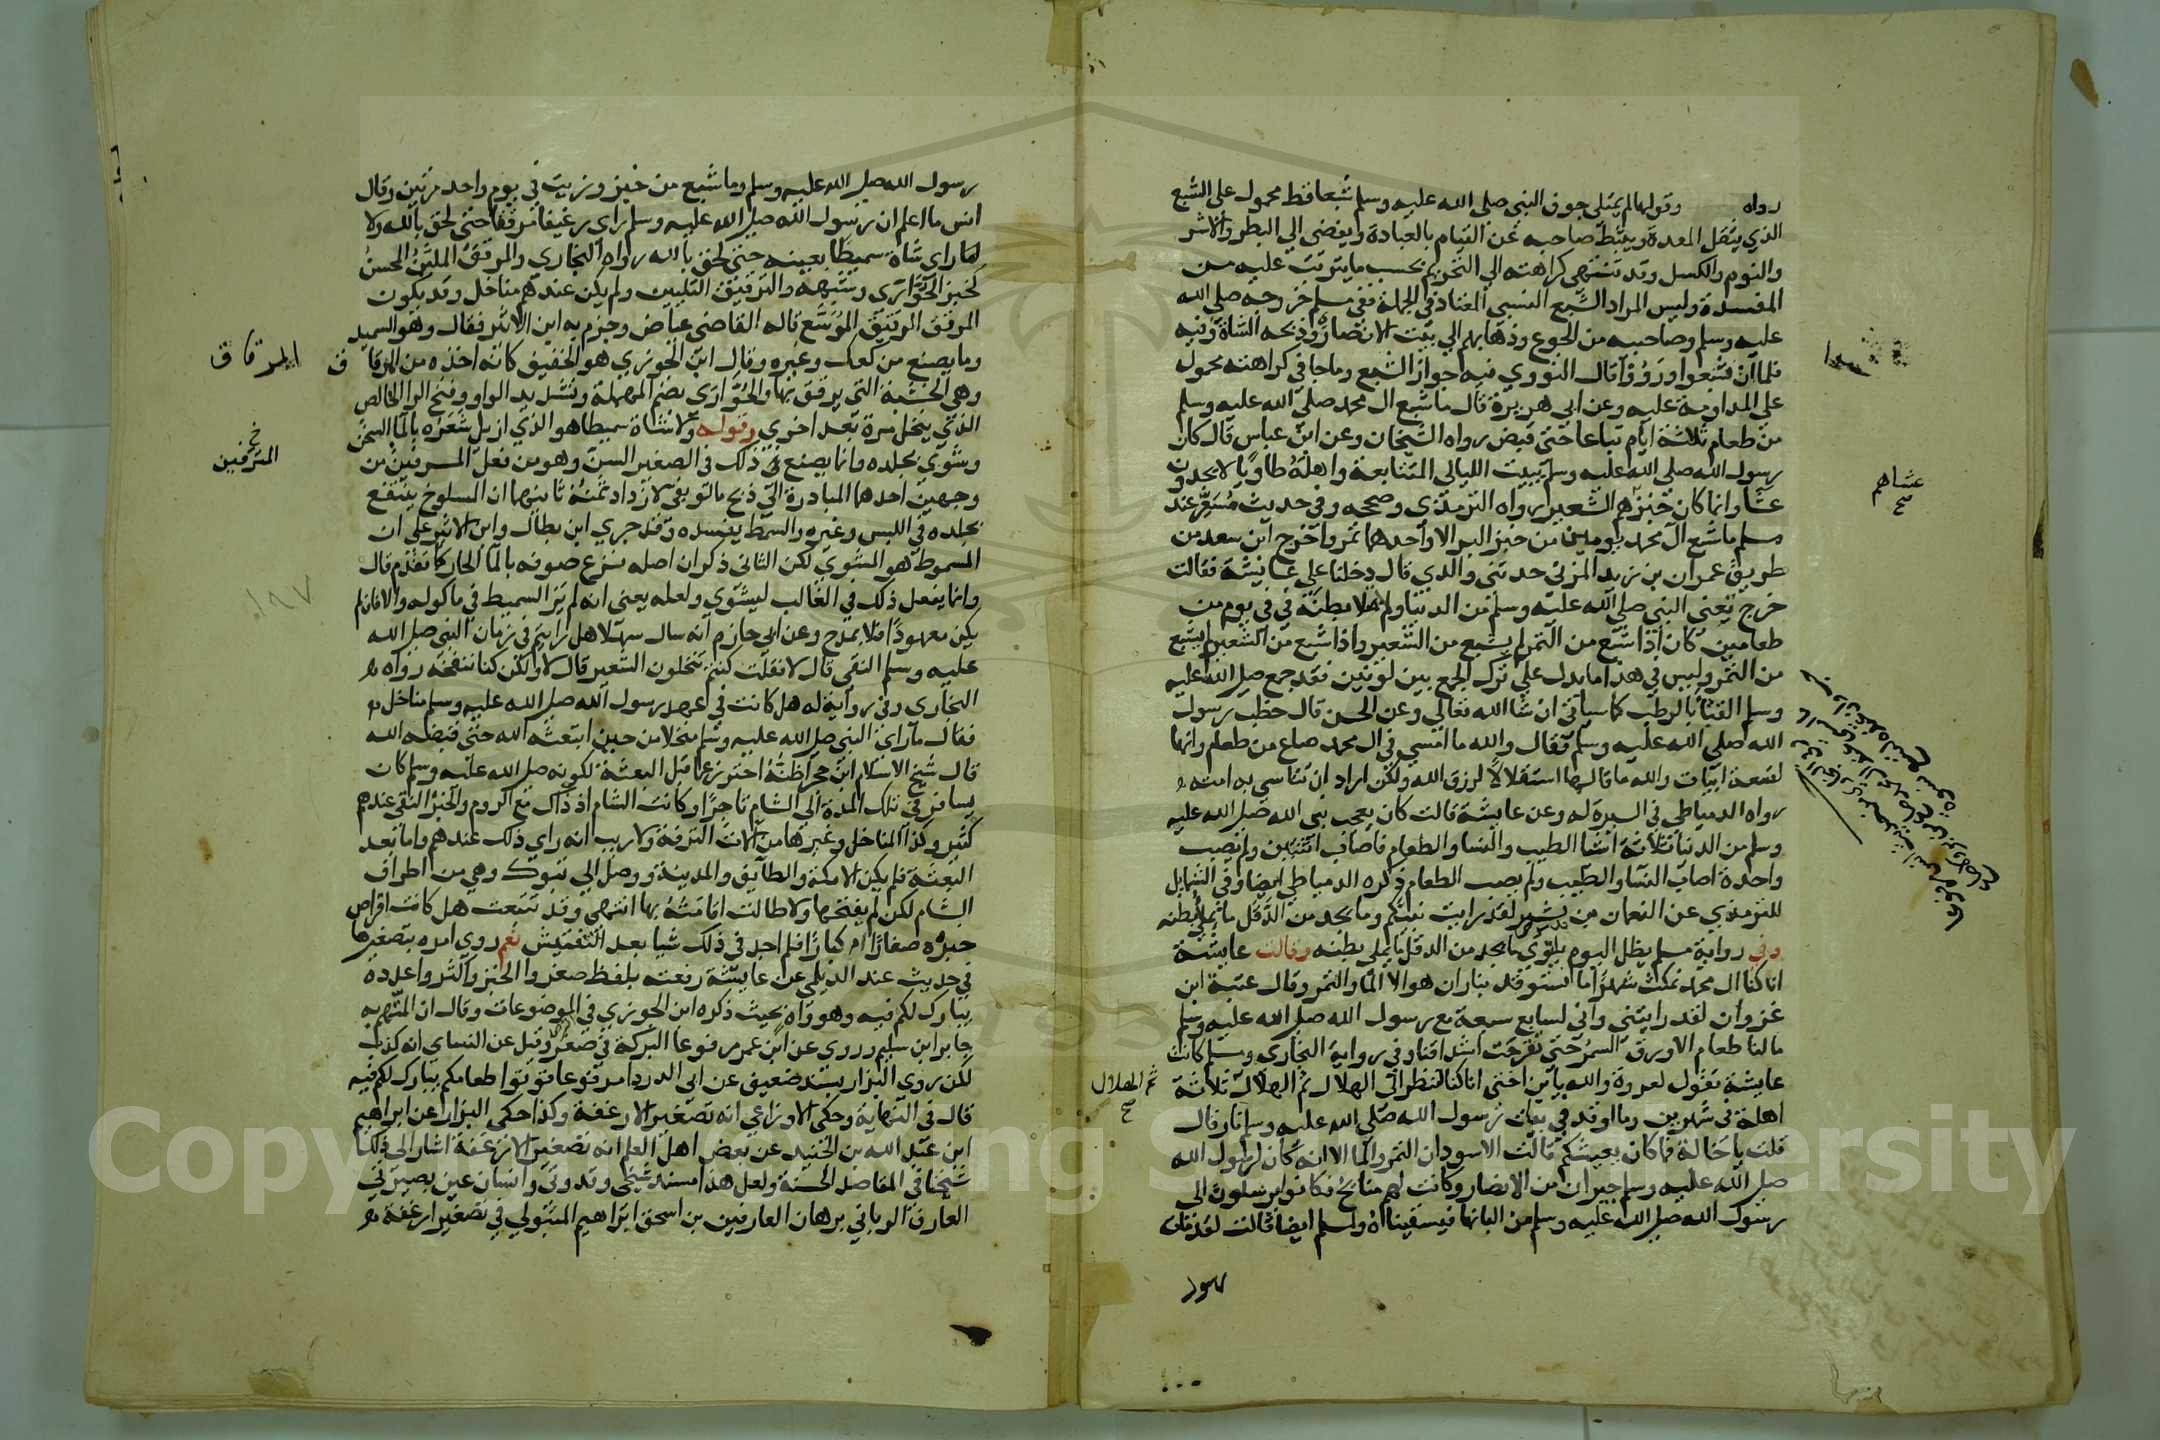 رواه وقولها لم يمتلي جوف النبي صلى الله عليه وسلم شبعا قط محمول على الشبع
الذي يثقل المعدة ويثبط صاحبه عن القيام بالعبادة ويفضي الي البطر والاشر
والنوم والكسل وقد تنتهي كراهته الي التحريم بحسب ما يترتب عليه من
المفسدة وليس المراد الشبع النسبي المعتاد في الجملة ففي مسلم خروجه صلى الله
عليه وسلم وصاحبيه من الجوع وذهابهم الي بيت الانصاري وذبحه الشاة وفيه
فلما ان شبعوا ورووا قال النووي فيه جواز الشبع وما جا في كراهته محمول
على المداومة عليه وعن ابي هريرة قال ما شبع ال محمد صلى الله عليه وسلم
من طعام ثلاثة ايام تباعا حتى قبض رواه الشيخان وعن ابن عباس قال كان
رسول الله صلى الله عليه وسلم يبيت الليالي المتتابعة واهله طاويا لا يجدون
عشا وانما كان خبزهم الشعير رواه الترمذي وصححه وفي حديث مسعر عند
مسلم ما شبع ال محمد يومين من خبز البر الا واحدهما تمر واخرج ابن سعد من
طريق عمران بن زيد المزني حدثني والدي قال دخلنا على عائيشة فقالت
خرج تعني النبي صلى الله عليه وسلم من الدنيا ولم يملا بطنه في في يوم من
طعامين كان اذا شبع من التمر لم يشبع من الشعير واذا شبع من الشعير لم يشبع
من التمر وليس في هذا ما يدل على ترك الجمع بين لونين فقد جمع صلى الله عليه
وسلم القثا بالرطب كما سياتي ان شا الله تعالى وعن الحسن قال خطب رسول
الله صلى الله عليه وسلم فقال والله ما امسي في ال محمد صاع من طعام وانها
لتسعة ابيات والله ما قالها استقلالا لرزق الله ولكن اراد ان تتاسي به امته
رواه الدمياطي في السيرة له وعن عايشة قالت كان يعجب نبي الله صلى الله عليه
وسلم من الدنيا ثلاثة اشيا الطيب والنسا والطعام فاصاب اثنتين ولم يصب
واحدة اصاب النسا والطيب ولم يصب الطعام ذكره الدمياطي ايضا وفي الشمايل
للترمذي عن النعمان بن بشير لقد رايت نبيكم وما يجد من الدقل ما يملا بطنه
وفي رواية مسلم يظل اليوم يلتوي ما يجد من الدقل ما يملي بطنه وقالت عايشة
انا كنا ال محمد نمكث شهرا ما نستوقد بنار ان هو الا الما والتمر وقال عتبة ابن
غزوان لقد رايتني واني لسابع سبعة مع رسول الله صلى الله عليه وسلم
مالنا طعام الا ورق السمر حتى تقرحت اشداقنا وفي رواية البخاري ومسلم كانت
عايشة تقول لعروة والله يا بن اختي انا كنا لننظر الى الهلال ثم الهلال ثلاثة
اهلة في شهرين وما اوقد في بيات رسول الله صلى الله عليه وسلم نار قال
قلت يا خالة فما كان يعيشكم قالت الاسودان التمر والما الا انه كان لرسول الله
صلى الله عليه وسلم جيران من الانصار وكانت لهم منائح فكانوا يرسلون الى
رسول الله صلى الله عليه وسلم من البانها فيسقيناه ولمسلم ايضا قالت لقد مات
رسول
عشاهم
ثم الهلال
رسول الله صلى الله عليه وسلم وما شبع من خبز وزيت في يوم واحد مرتين وقال
انس ما اعلم ان رسول الله صلى الله عليه وسلم راي رغيفا مرققا حتى لحق بالله ولا
راي شاة سميطا بعينه حتى لحق بالله رواه البخاري والمرقق الملين المحسن
كخبز الحواري وشبهه والترقيق التليين ولم يكن عندهم مناخل وقد يكون
المرقق الرقيق الموسع قاله القاضي عياض وجزم به ابن الاثير فقال وهو السميد
وما يصنع من كعك وغيره وقال ابن الجوزي هو الخفيف كانه اخذه من المرقاق
وهي الخشبة التي يرقق بها والحواري بضم المهملة وتشديد الواو وفتح الرا الخالص
الذي ينخل مرة بعد اخري وقوله ولا شاة سميطا هو الذي ازيل شعره بالما السخن
وشوي بجلده وانما يصنع ذلك في الصغير السن وهو من فعل المسرفين من
وجهين احدهما المبادرة الي ذبح ما لو بقي لازداد ثمنه ثانيهما ان المسلوخ ينتفع
بجلده في اللبس وغيره والسمط يفسده وقد جري ابن بطال وابن الاثير على ان
المسموط هو المشوي لكن الثاني ذكر ان اصله نزع صوفه بالما الحار كما تقدم قال
وانما يفعل ذلك في الغالب ليشوي ولعله يعني انه لم ير السميط في ماكوله والا فان لم
يكن معهودا فلا يمدح وعن ابي حازم انه سال سهلا هل رايتم في زمان النبي صلى الله
عليه وسلم النقي قال لا فقلت كنتم تنخلون الشعير قال لا ولكن كنا ننفخه رواه
البخاري وفي رواية له هل كانت في عهد رسول الله صلى الله عليه وسلم مناخل
فقال ما راي النبي صلى الله عليه وسلم منخلا من حين ابتعثه الله حتى قبضه الله
قال شيخ الاسلام ابن حجر اظنه احترز عما قبل البعثة لكونه صلى الله عليه وسلم كان
يسافر في تلك المدة الي الشام تاجرا وكانت الشام اذ ذاك مع الروم والخبز النقي عندهم
كثير وكذا المناخل وغيرها من الات الترفة ولا ريب انه راي ذلك عندهم واما بعد
البعثة فلم يكن الا بمكة والطايف والمدينة ووصل الي تبوك وهي من اطراف
الشام لكن لم يفتحها ولا طالت اقامته بها انتهى وقد تتبعت هل كانت اقراص
خبزه صغارا ام كبارا فلم اجد في ذلك شيا بعد التفتيش نعم روي امره بتصغيرها
في حديث عند الديلمي عن عايشة رفعته بلفظ صغروا الخبز واكثروا عدده
يبارك لكم فيه وهو واه بحيث ذكره ابن الجوزي في الموضوعات وقال ان المتهم به
جابر ابن سليم وروي عن ابن عمر مرفوعا البركة في صغر القرص ونقل عن النساي انه كذب
لكن روي البزار بسند ضعيف عن ابي الدرداء مرفوعا قوتوا طعامكم يبارك لكم فيه
قال في النهاية وحكى الاوزاعي انه تصغير الارغفة وكذا حكى البزار عن ابراهيم
ابن عبد الله بن الجنيد عن بعض اهل العلم انه تصغير الارغفة اشار الى ذلك
شيخنا في المقاصد الحسنة ولعل هذا مستند شيخي وقدوتي وانسان عين بصيرتي
العارف الرباني برهان العارفين بن اسحق ابراهيم المتبولي في تصغير ارغفة
المرقاق
المترفين
Copyright © King Saud University